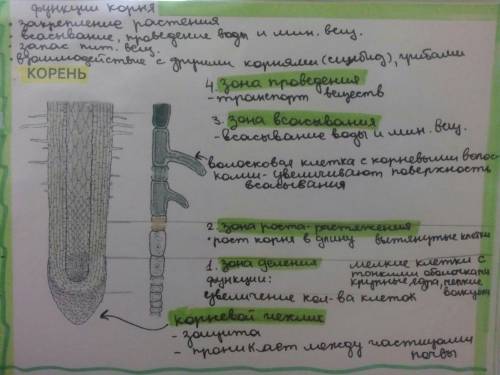 функции корня
закрепление растения
всасывание, проведение воды и мин. вещ.
запас пит. вещ.
взаимодействие с другими корнями (симбиоз), грибами
КОРЕНЬ
4. зона проведения
- транспорт веществ
3. зона всасывания
- всасывание воды и мин. вещ.
волосковая клетка с корневыми волос-
ками - увеличивают поверхность
всасывания
2. зона роста-растяжения
• рост корня в длину вытянутые клетки
1. зона деления мелкие клетки с
тонкими оболочками
функции: крупные ядра, мелкие
увеличение кол-ва клеток вакуоли
корневой чехлик
- защита
- проникает между частицами
почвы